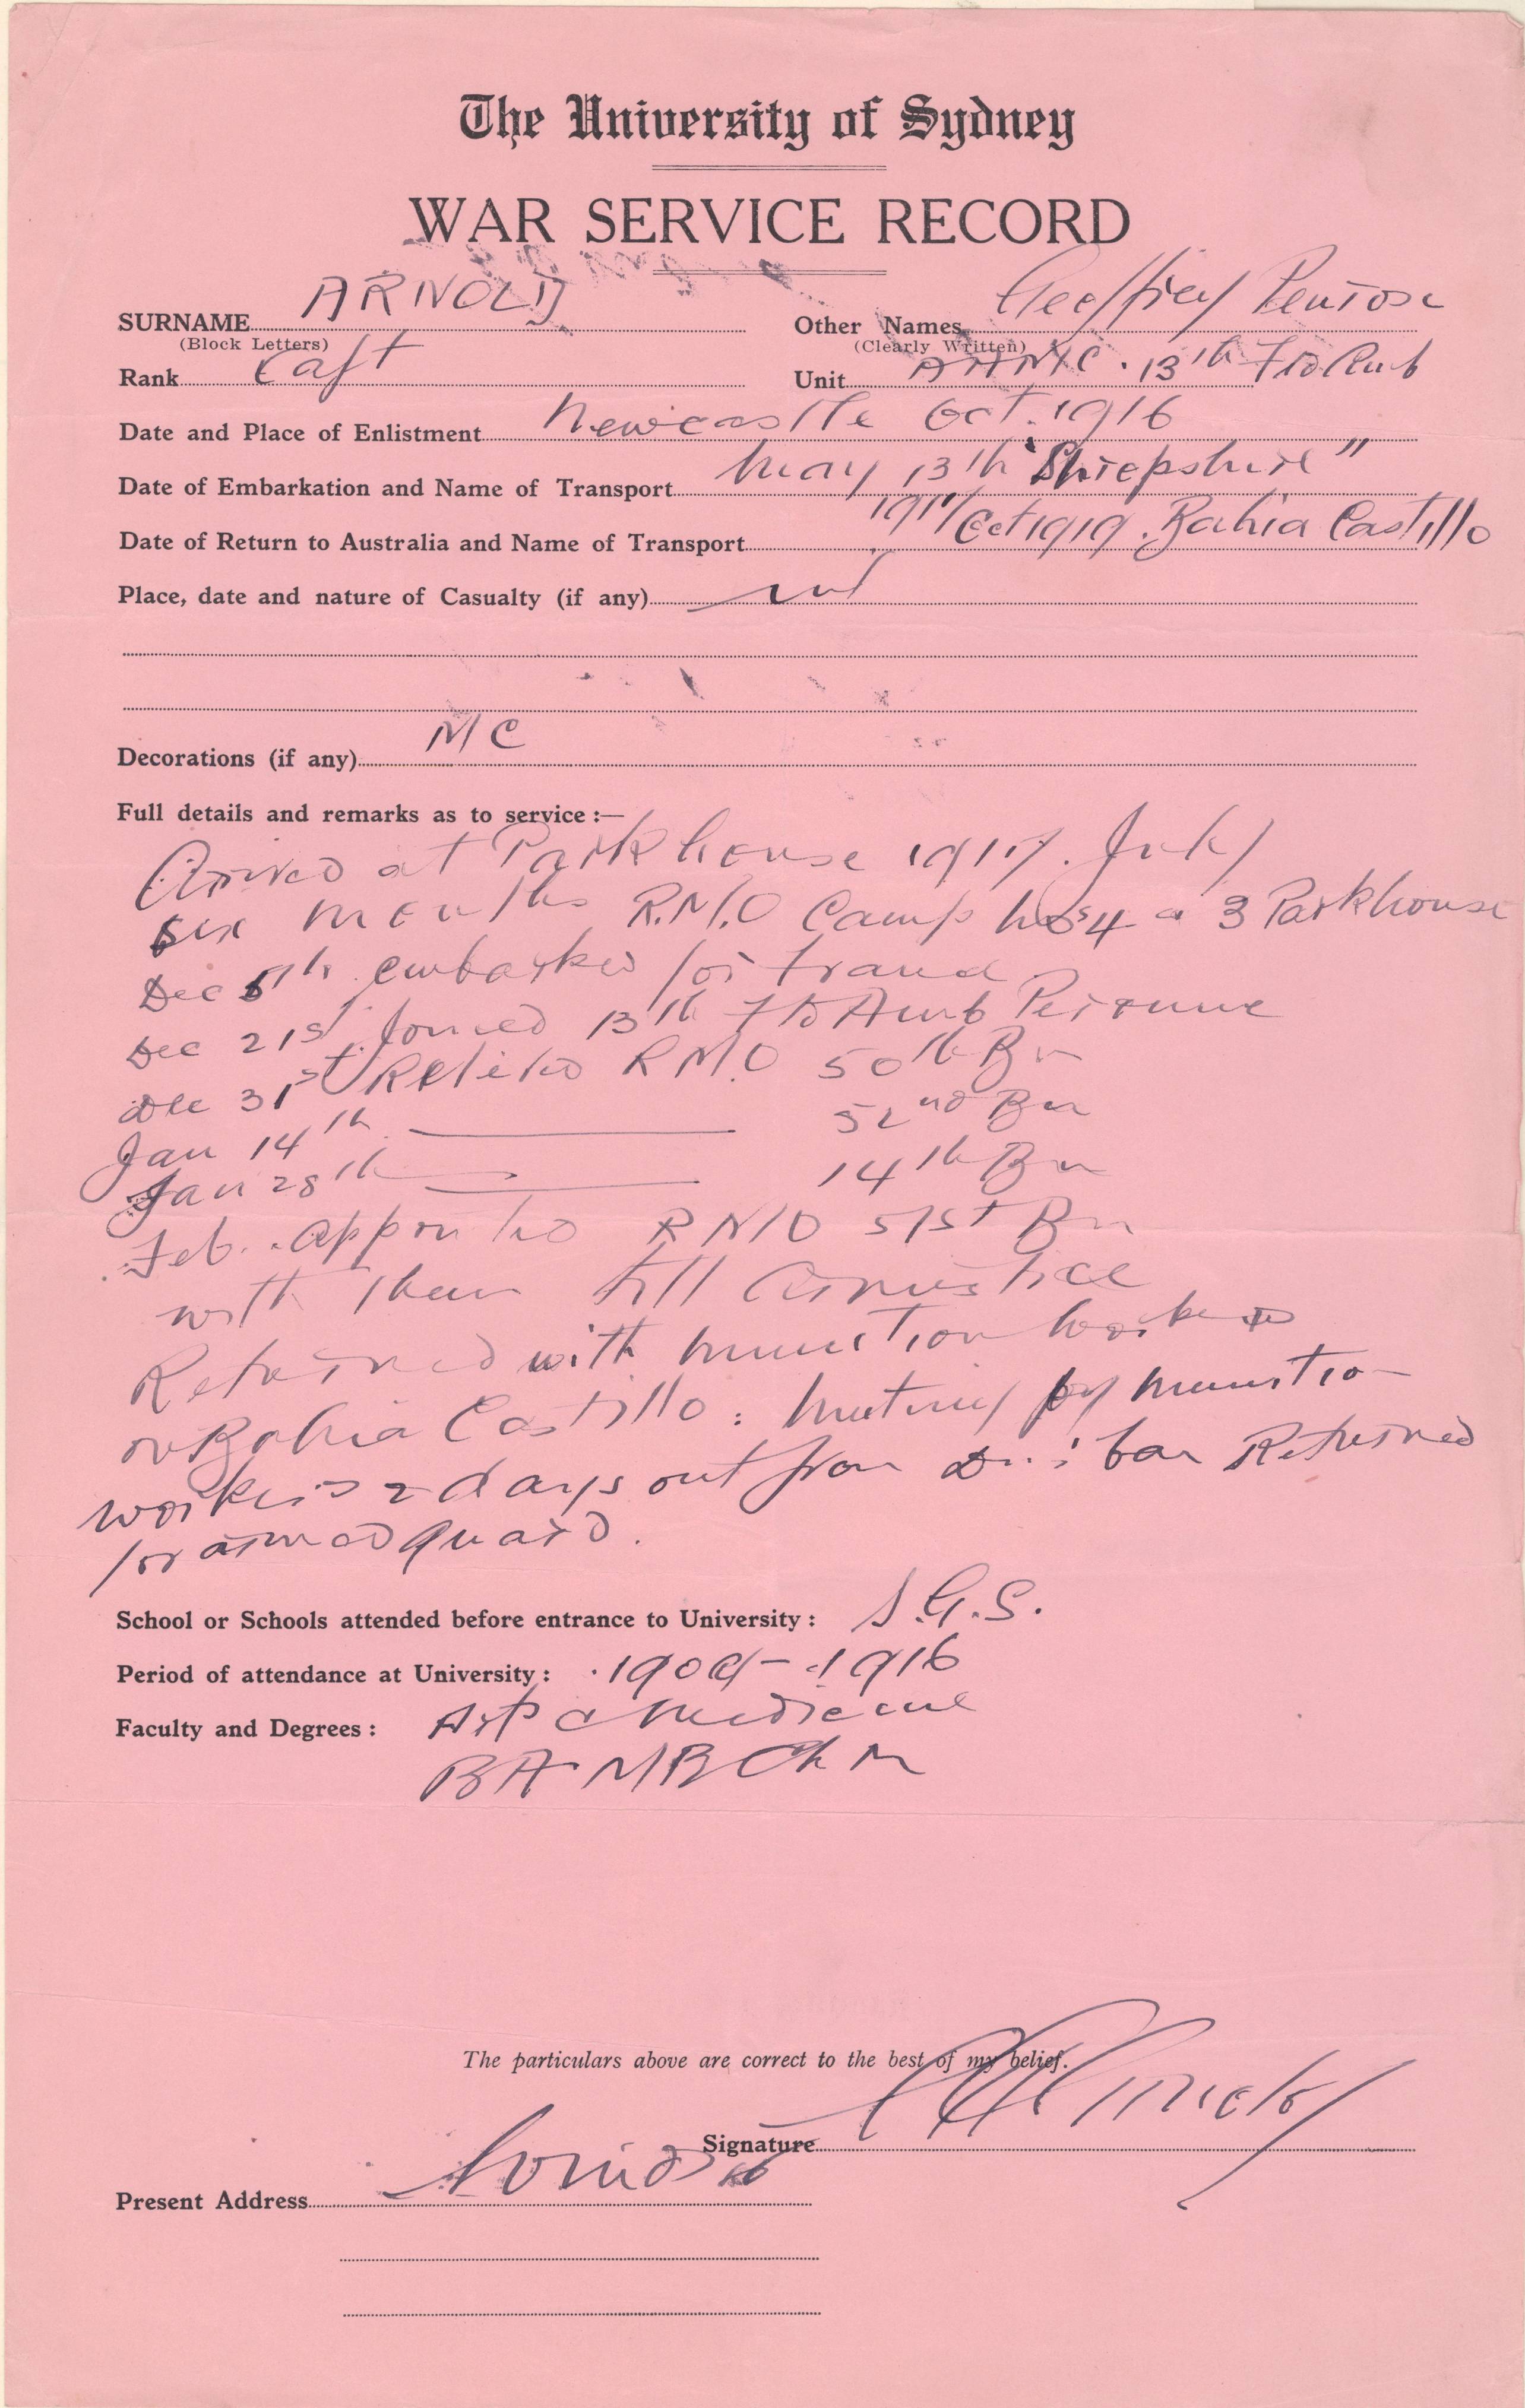 The University of Sydney
WAR SERVICE RECORD
SURNAME ARNOLD Other Names Geoffrey Penrose
(Block Letters) (Clearly Written)
Rank Capt Unit AAMC. 13th Fld Amb
Date and Place of Enlistment Newcastle Oct. 1916
Date of Embarkation and Name of Transport May 13th "Shropshire"
1917
Date of Return to Australia and Name of Transport Oct 1919. Bahia Castillo
Place, date and nature of Casualty (if any)
Decorations (if any) MC
Full details and remarks as to service:—
Arrived at Parkhouse 1917. July
six months R.M.O Camp 4 & 3 Parkhouse
Dec 5th embarked for France
Dec 21st. Joined 13th Fld Amb Peronne
Dec 31st Relieved R.M.O 50th Bn
Jan 14th — 52nd Bn
Jan 28th — 14th Bn
Feb. appointed RMO 51st Bn
with them till Armistice
Returned with munition workers
on Bahia Castillo: mutiny by munition
workers 2 days out from Durban Returned
for armed guard.
School or Schools attended before entrance to University: S.G.S.
Period of attendance at University: 1909-1916
Faculty and Degrees: Arts & Medicine
BA MB ChM
The particulars above are correct to the best of my belief.
Signature
Present Address Windsor